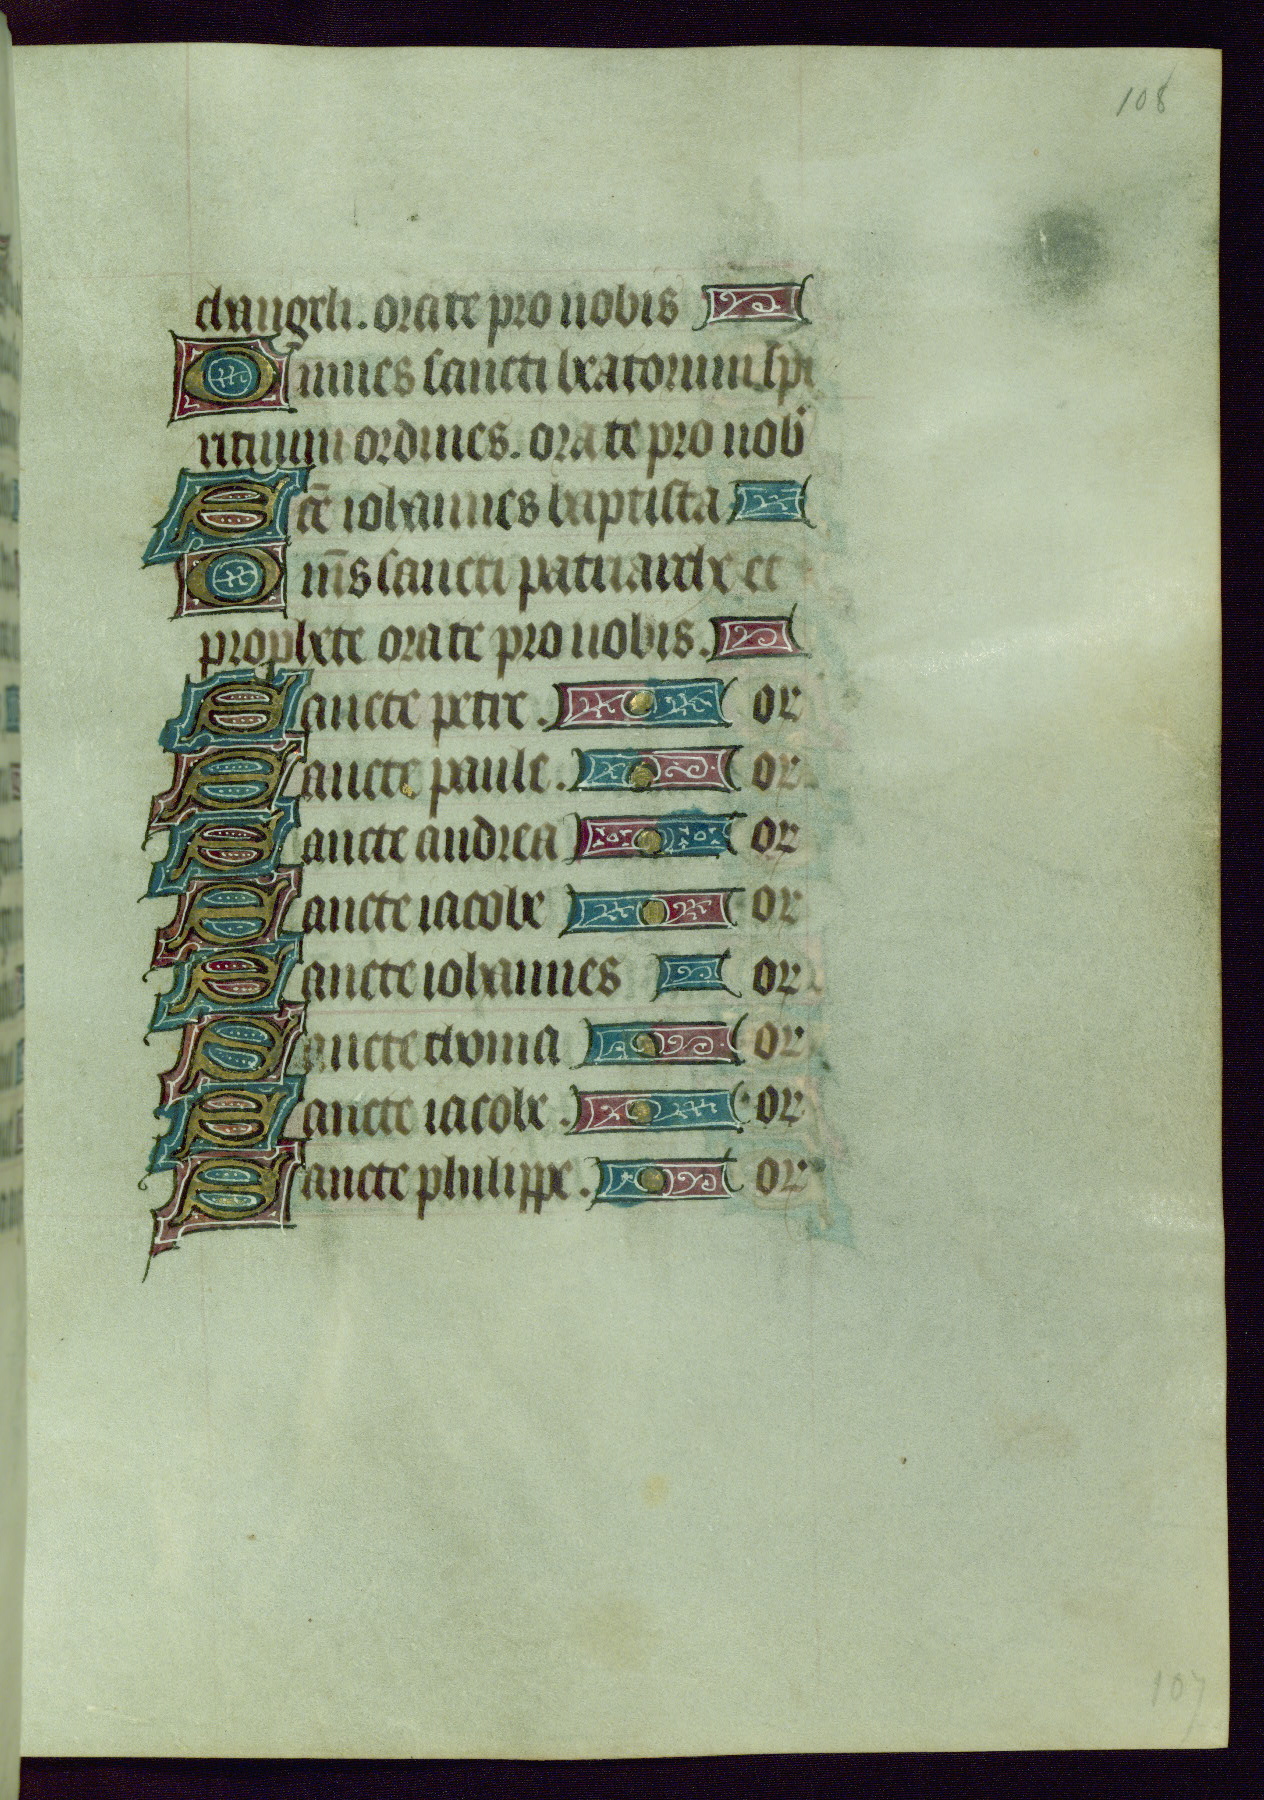 108
changeli. orate pro nobis
Omnes sancti beatorum spi
rituum ordines. orate pro nob
Scē iohannes baptista
Om̄s sancti patriarche et
prophete orate pro nobis.
Sancte petre. or
Sancte paule. or
Sancte andrea or
Sancte iacobe or
Sancte iohannes or
Sancte thoma or
Sancte iacobe. or
Sancte philippe. or
107